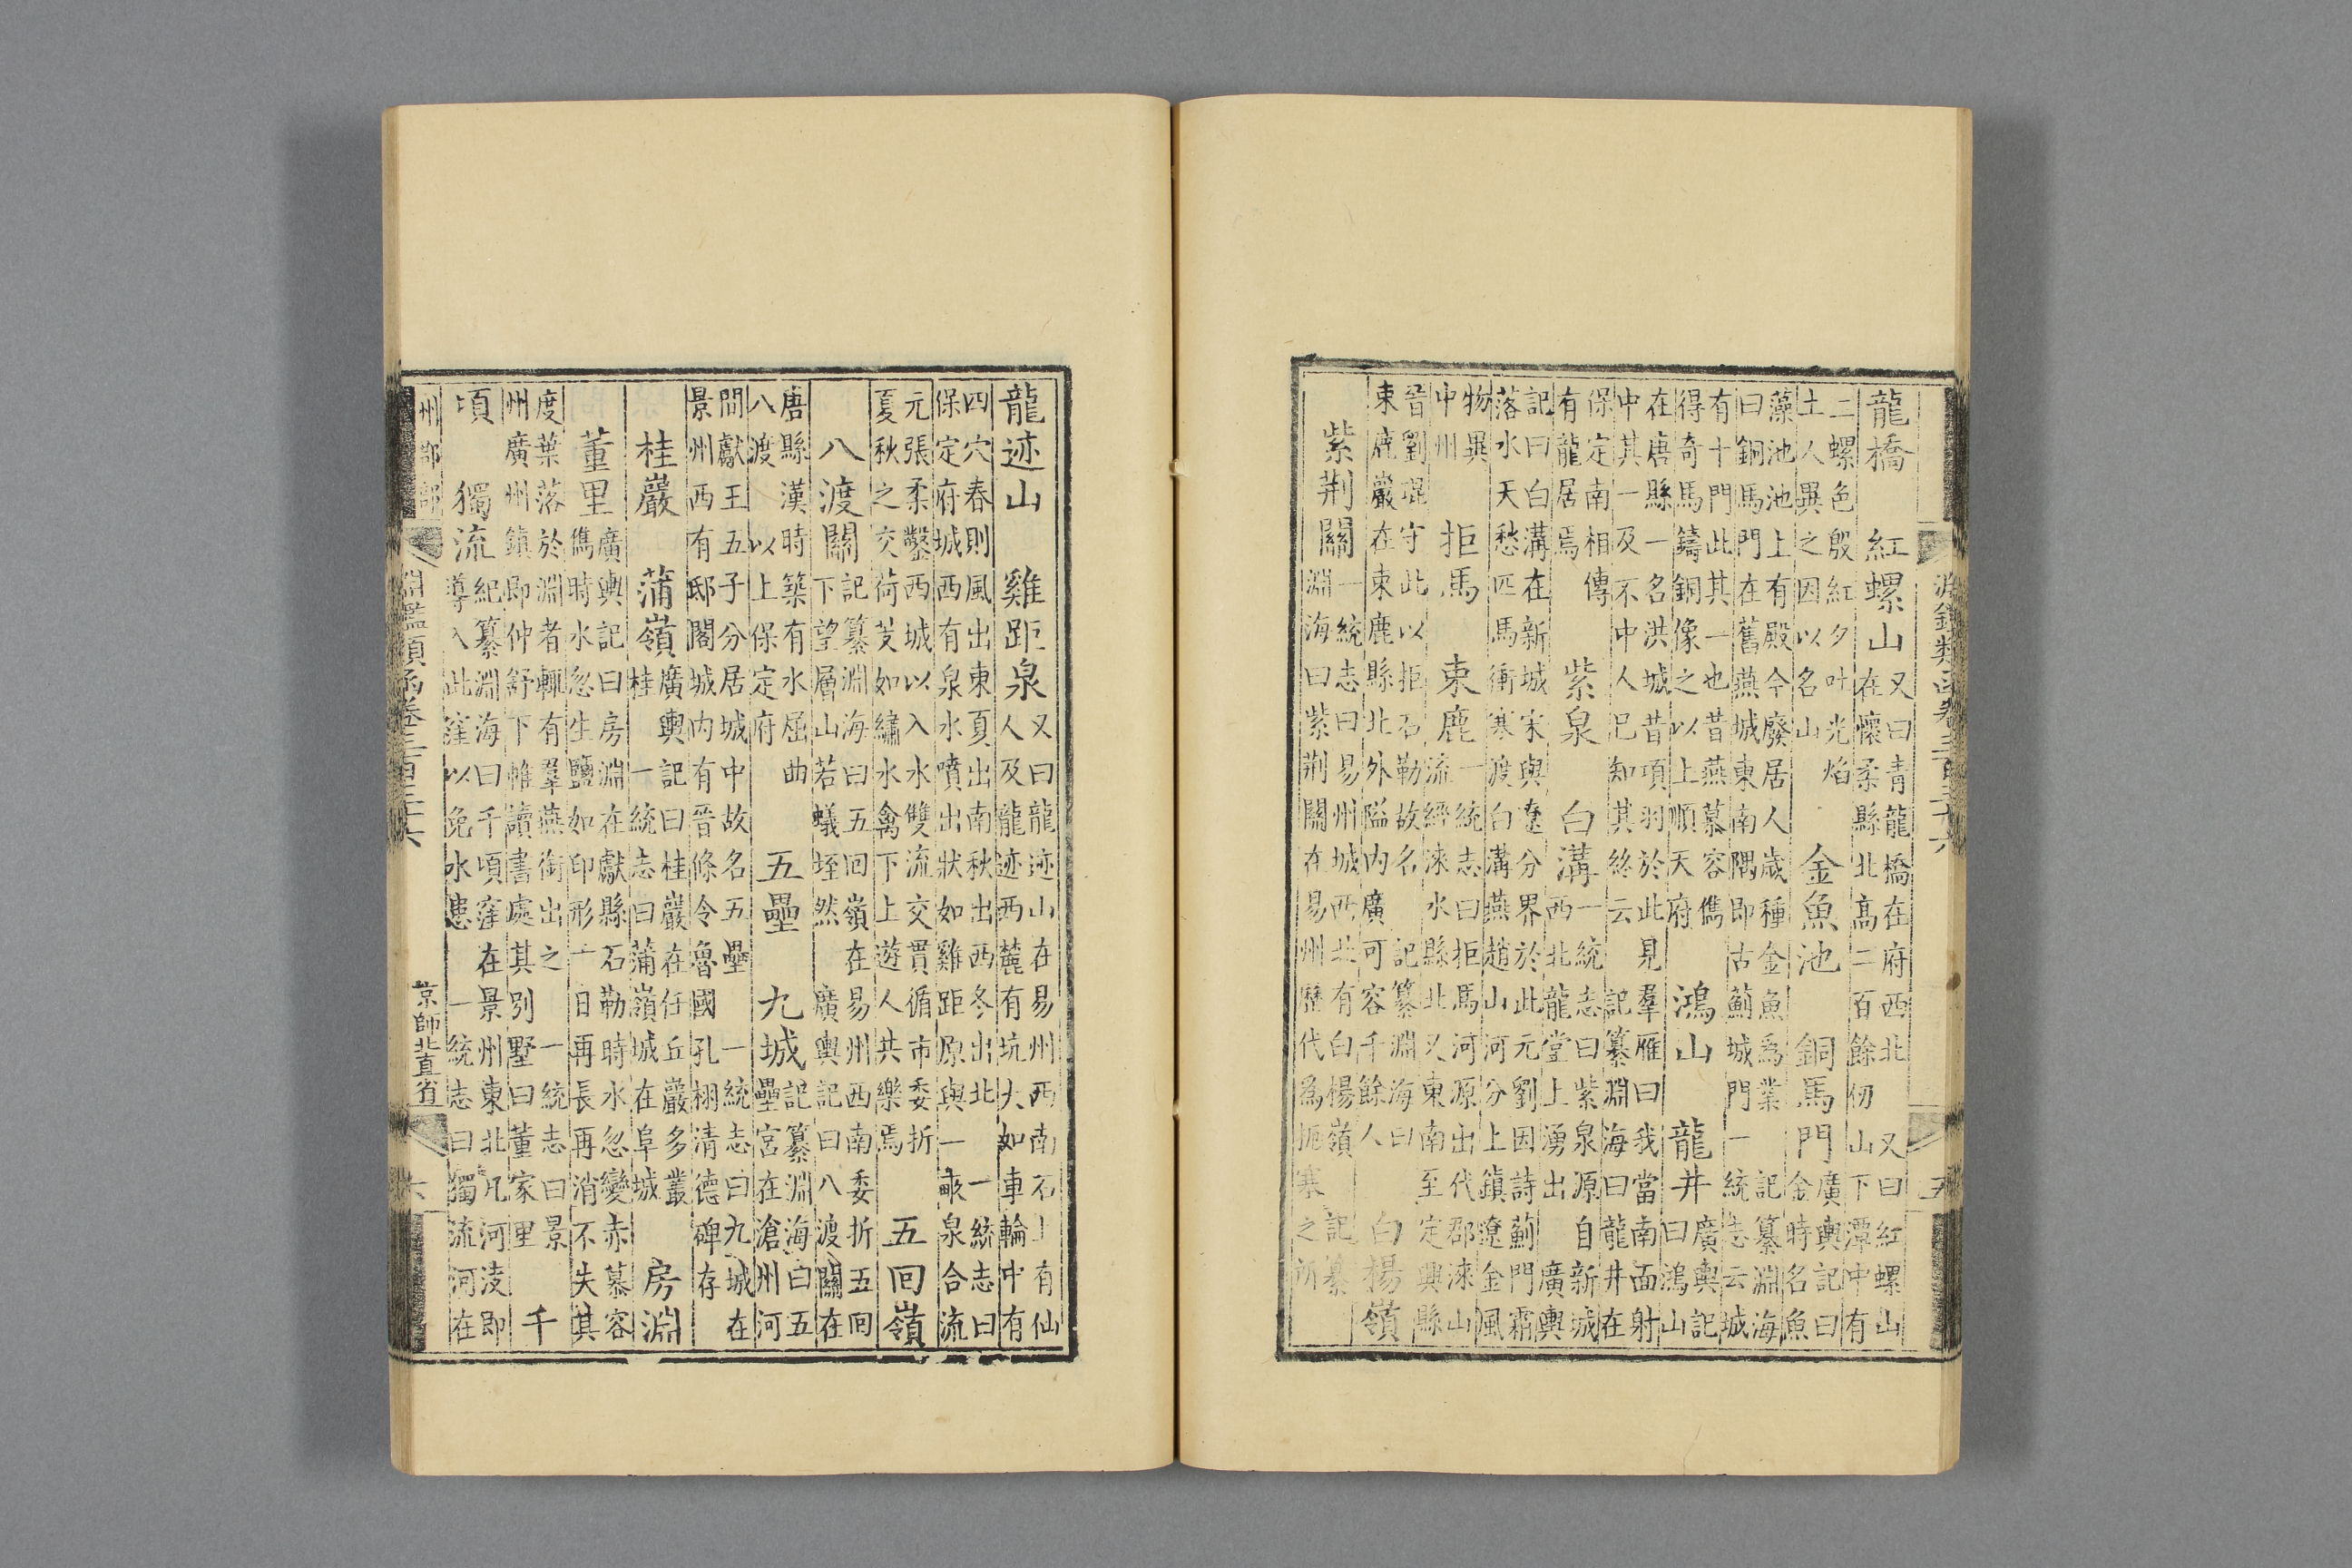 淵鑑類函卷三百三十六 五
龍橋 紅螺山
又曰青龍橋在府西北 又曰紅螺山
在懷柔縣北高二百餘仞 山下潭中有
二螺色殷紅夕吐光焰
土人異之因以名山
金魚池 銅馬門
廣輿記曰
金時名魚
藻池池上有殿今廢居人歲種金魚爲業 記纂淵海
曰銅馬門在舊燕城東南隅即古薊城門 一統志云城
有十門此其一也昔燕慕容儁
得奇馬鑄銅像之以上順天府
鴻山 龍井
廣輿記
曰鴻山
在唐縣一名洪城昔項羽於此見羣雁曰我當南面射
中其一及不中人已知其終云 記纂淵海曰龍井在
保定南相傳
有龍居焉
紫泉 白溝
一統志曰紫泉源自新城
西北龍堂上湧出 廣輿
記曰白溝在新城宋與遼分界於此元劉因詩薊門霜
落水天愁匹馬衝寒渡白溝燕趙山河分上鎮遼金風
物異
中州
拒馬 束鹿
一統志曰拒馬河源出代郡淶山
流經淶水縣北又東南至定興縣
晉劉琨守此以拒石勒故名 記纂淵海曰
束鹿巖在束鹿縣北外隘内廣可容千餘人
白楊嶺
紫荆關
一統志曰易州城西北有白楊嶺 記纂
淵海曰紫荆關在易州歷代爲扼塞之所
龍迹山 雞距泉
又曰龍迹山在易州西南石上有仙
人及龍迹西麓有坑大如車輪中有
四穴春則風出東夏出南秋出西冬出北 一統志曰
保定府城西有泉水噴出狀如雞距原與一畝泉合流
元張柔鑿西城以入水雙流交貫循市委折
夏秋之交荷芰如繡水禽下上遊人共樂焉
五回嶺
八渡關
記纂淵海曰五回嶺在易州西南委折五回
下望層山若蟻垤然 廣輿記曰八渡關在
唐縣漢時築有水屈曲
八渡 以上保定府
五壘 九城
記纂淵海曰五
壘宮在滄州河
間獻王五子分居城中故名五壘 一統志曰九城在
景州西有邸閣城内有晉條令魯國孔栩清德碑存
桂巖 蒲嶺
廣輿記曰桂巖在任丘巖多叢
桂 一統志曰蒲嶺城在阜城
房淵
董里
廣輿記曰房淵在獻縣石勒時水忽變赤慕容
儁時水忽生鹽如印形一日再長再消不失其
度葉落於淵者輒有羣燕銜出之 一統志曰景
州廣州鎮即仲舒下帷讀書處其別墅曰董家里
千
頃 獨流
紀纂淵海曰千頃窪在景州東北凡河淩即
導入此窪以免水患 一統志曰獨流河在
州郡部 淵鑑類函卷三百三十六 京師北直省 六